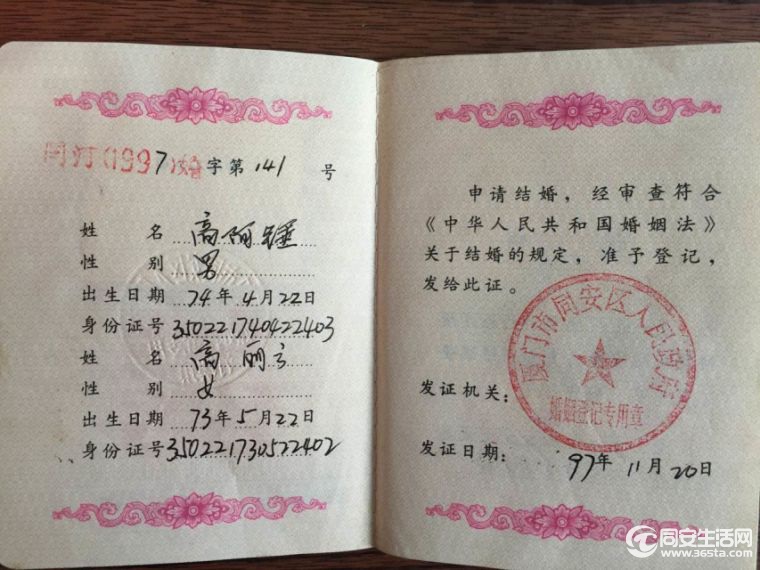 1997婚字第141号
姓名 高阿
性别 男
出生日期 74年4月22日
身份证号 350221740422403
姓名 高丽
性别 女
出生日期 73年5月22日
身份证号 350221730522402
申请结婚，经审查符合
《中华人民共和国婚姻法》
关于结婚的规定，准予登记，
发给此证。
厦门市同安区人民政府
婚姻登记专用章
发证机关：
发证日期： 97年11月20日
同安生活网
www.365ta.com